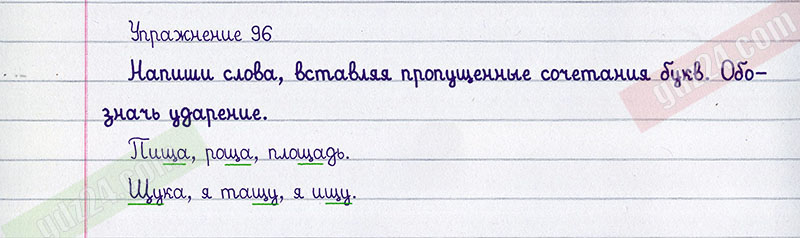 Упражнение 96
Напиши слова, вставляя пропущенные сочетания букв. Обо-
значь ударение.
Пища, роща, площадь.
Щука, я тащу, я ищу.
gdz24.com
gdz24.com